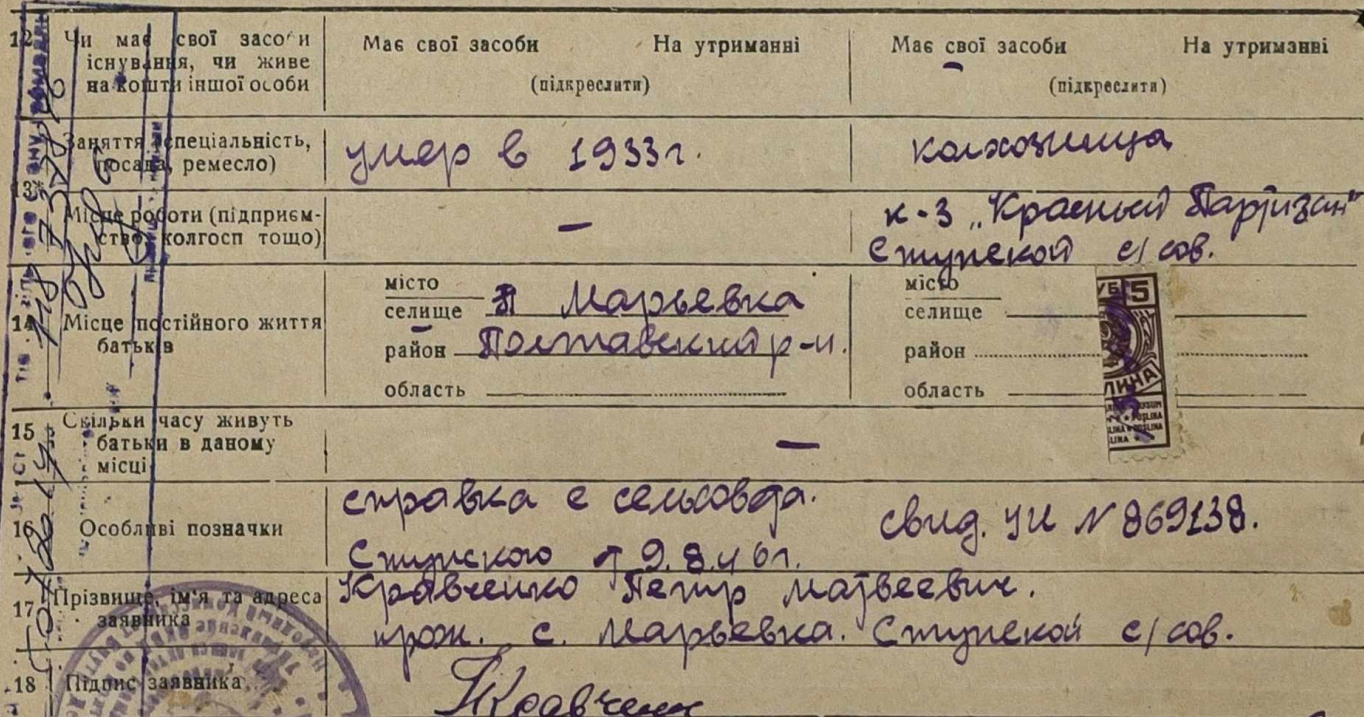 12 Чи має свої засоби існування, чи живе на кошти іншої особи
Має свої засоби На утриманні
(підкреслити)
Має свої засоби На утриманні
(підкреслити)
13 Заняття (спеціальність, посада, ремесло)
умер в 1933 г.
колхозница
Місце роботи (підприємство, колгосп тощо)
—
к-з „Красный Партизан"
Ступской с/сов.
14 Місце постійного життя батьків
місто
селище Марьевка
район Полтавский р-н.
область
місто
селище
район
область
15 Скільки часу живуть батьки в даному місці
—
16 Особливі позначки
справка с сельсовета.
Ступского от 9.8.46 г.
свид. УИ № 869138.
17 Прізвище, ім'я та адреса заявника
Кравченко Петр Матвеевич.
прож. с. Марьевка. Ступской с/сов.
18 Підпис заявника
Кравченк
5